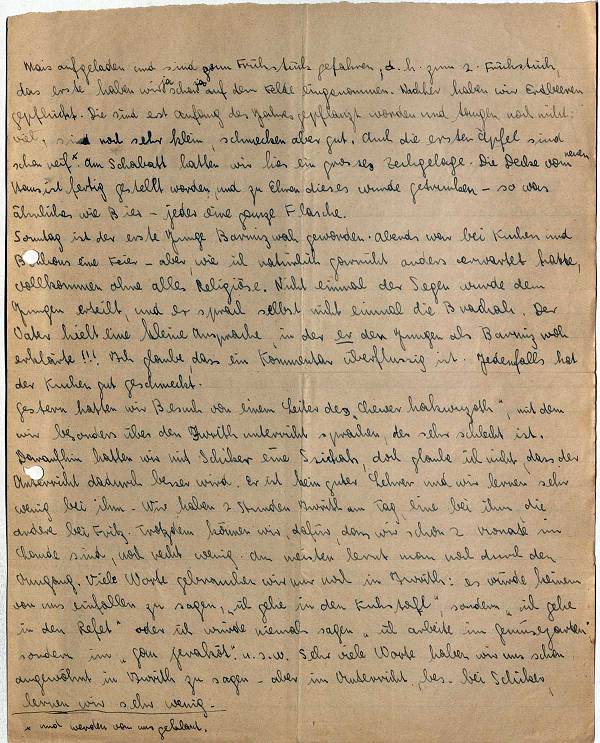 Mais aufgeladen und sind zum Frühstück gefahren, d.h. zum 2. Frühstück,
das erste haben wir ja schon auf dem Felde eingenommen. Nachher haben wir Erdbeeren
gepflückt. Die sind erst Anfang des Jahres gepflanzt worden und tragen noch nicht
viel, sind noch sehr klein, schmecken aber gut. Auch die ersten Äpfel sind
schon reif * Am Schabatt hatten wir hier ein grosses Zechgelage. Die Decke vom neuen
Haus ist fertig gestellt worden, und zu Ehren dieses wurde getrunken – so was
ähnliches wie Bier – jeder eine ganze Flasche.
Sonntag ist der erste Junge Barmizwah geworden. Abends war bei Kuchen und
Bonbons eine Feier – aber, wie ich natürlich garnicht anders erwartet hatte,
vollkommen ohne alles Religiöse. Nicht einmal der Segen wurde dem
Jungen erteilt, und er sprach selbst nicht einmal die Brachah. Der
Vater hielt eine kleine Ansprache, in der er den Jungen als Barmizwah
erklärte!!! Ich glaube, dass ein Kommentar überflüssig ist. Jedenfalls hat
der Kuchen gut geschmeckt.
Gestern hatten wir Besuch von einem Leiter des „Chewer hakwuzoth", mit dem
wir besonders über den Iwrithunterricht sprachen, der sehr schlecht ist.
Daraufhin hatten wir mit Schiker eine Ssichah, doch glaube ich nicht, dass der
Unterricht dadurch besser wird. Er ist kein guter Lehrer und wir lernen sehr
wenig bei ihm. – Wir haben 2 Stunden Iwrith am Tag, eine bei ihm, die
andere bei Fritz. Trotzdem können wir, dafür, dass wir schon 2 Monate im
Lande sind, noch recht wenig. Am meisten lernt man noch durch den
Umgang. Viele Worte gebrauchen wir nur noch in Iwrith: es würde keinem
von uns einfallen zu sagen, „ich gehe in den Kuhstall", sondern „ich gehe
in den Refet" oder ich würde niemals sagen „ich arbeite im Gemüsegarten"
sondern im „gan jerakot". u.s.w. Sehr viele Worte haben wir uns schon
angewöhnt in Iwrith zu sagen – aber im Unterricht, bes. bei Schiker,
lernen wir sehr wenig. –
* und werden von uns geklaut.